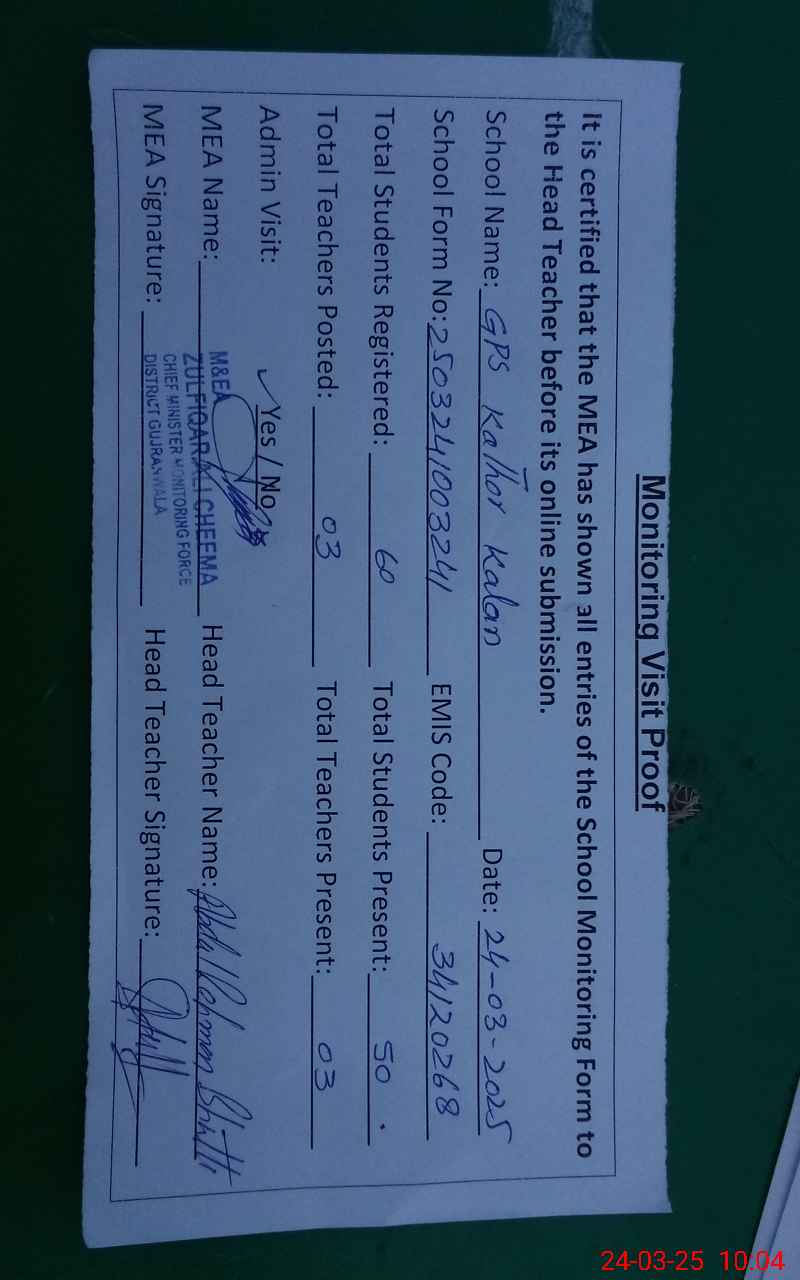 Monitoring Visit Proof
It is certified that the MEA has shown all entries of the School Monitoring Form to
the Head Teacher before its online submission.
School Name: GPS Kalhor Kalan Date: 24-03-2025
School Form No: 2503241003241 EMIS Code: 34120268
Total Students Registered: 60 Total Students Present: 50
Total Teachers Posted: 03 Total Teachers Present: 03
Admin Visit: ✓ Yes / No
MEA Name: Head Teacher Name: Abdul Rehman Bhatti
MEA Signature: Head Teacher Signature:
M&EA
ZULFIQAR ALI CHEEMA
CHIEF MINISTER MONITORING FORCE
DISTRICT GUJRANWALA
24-03-25 10:04